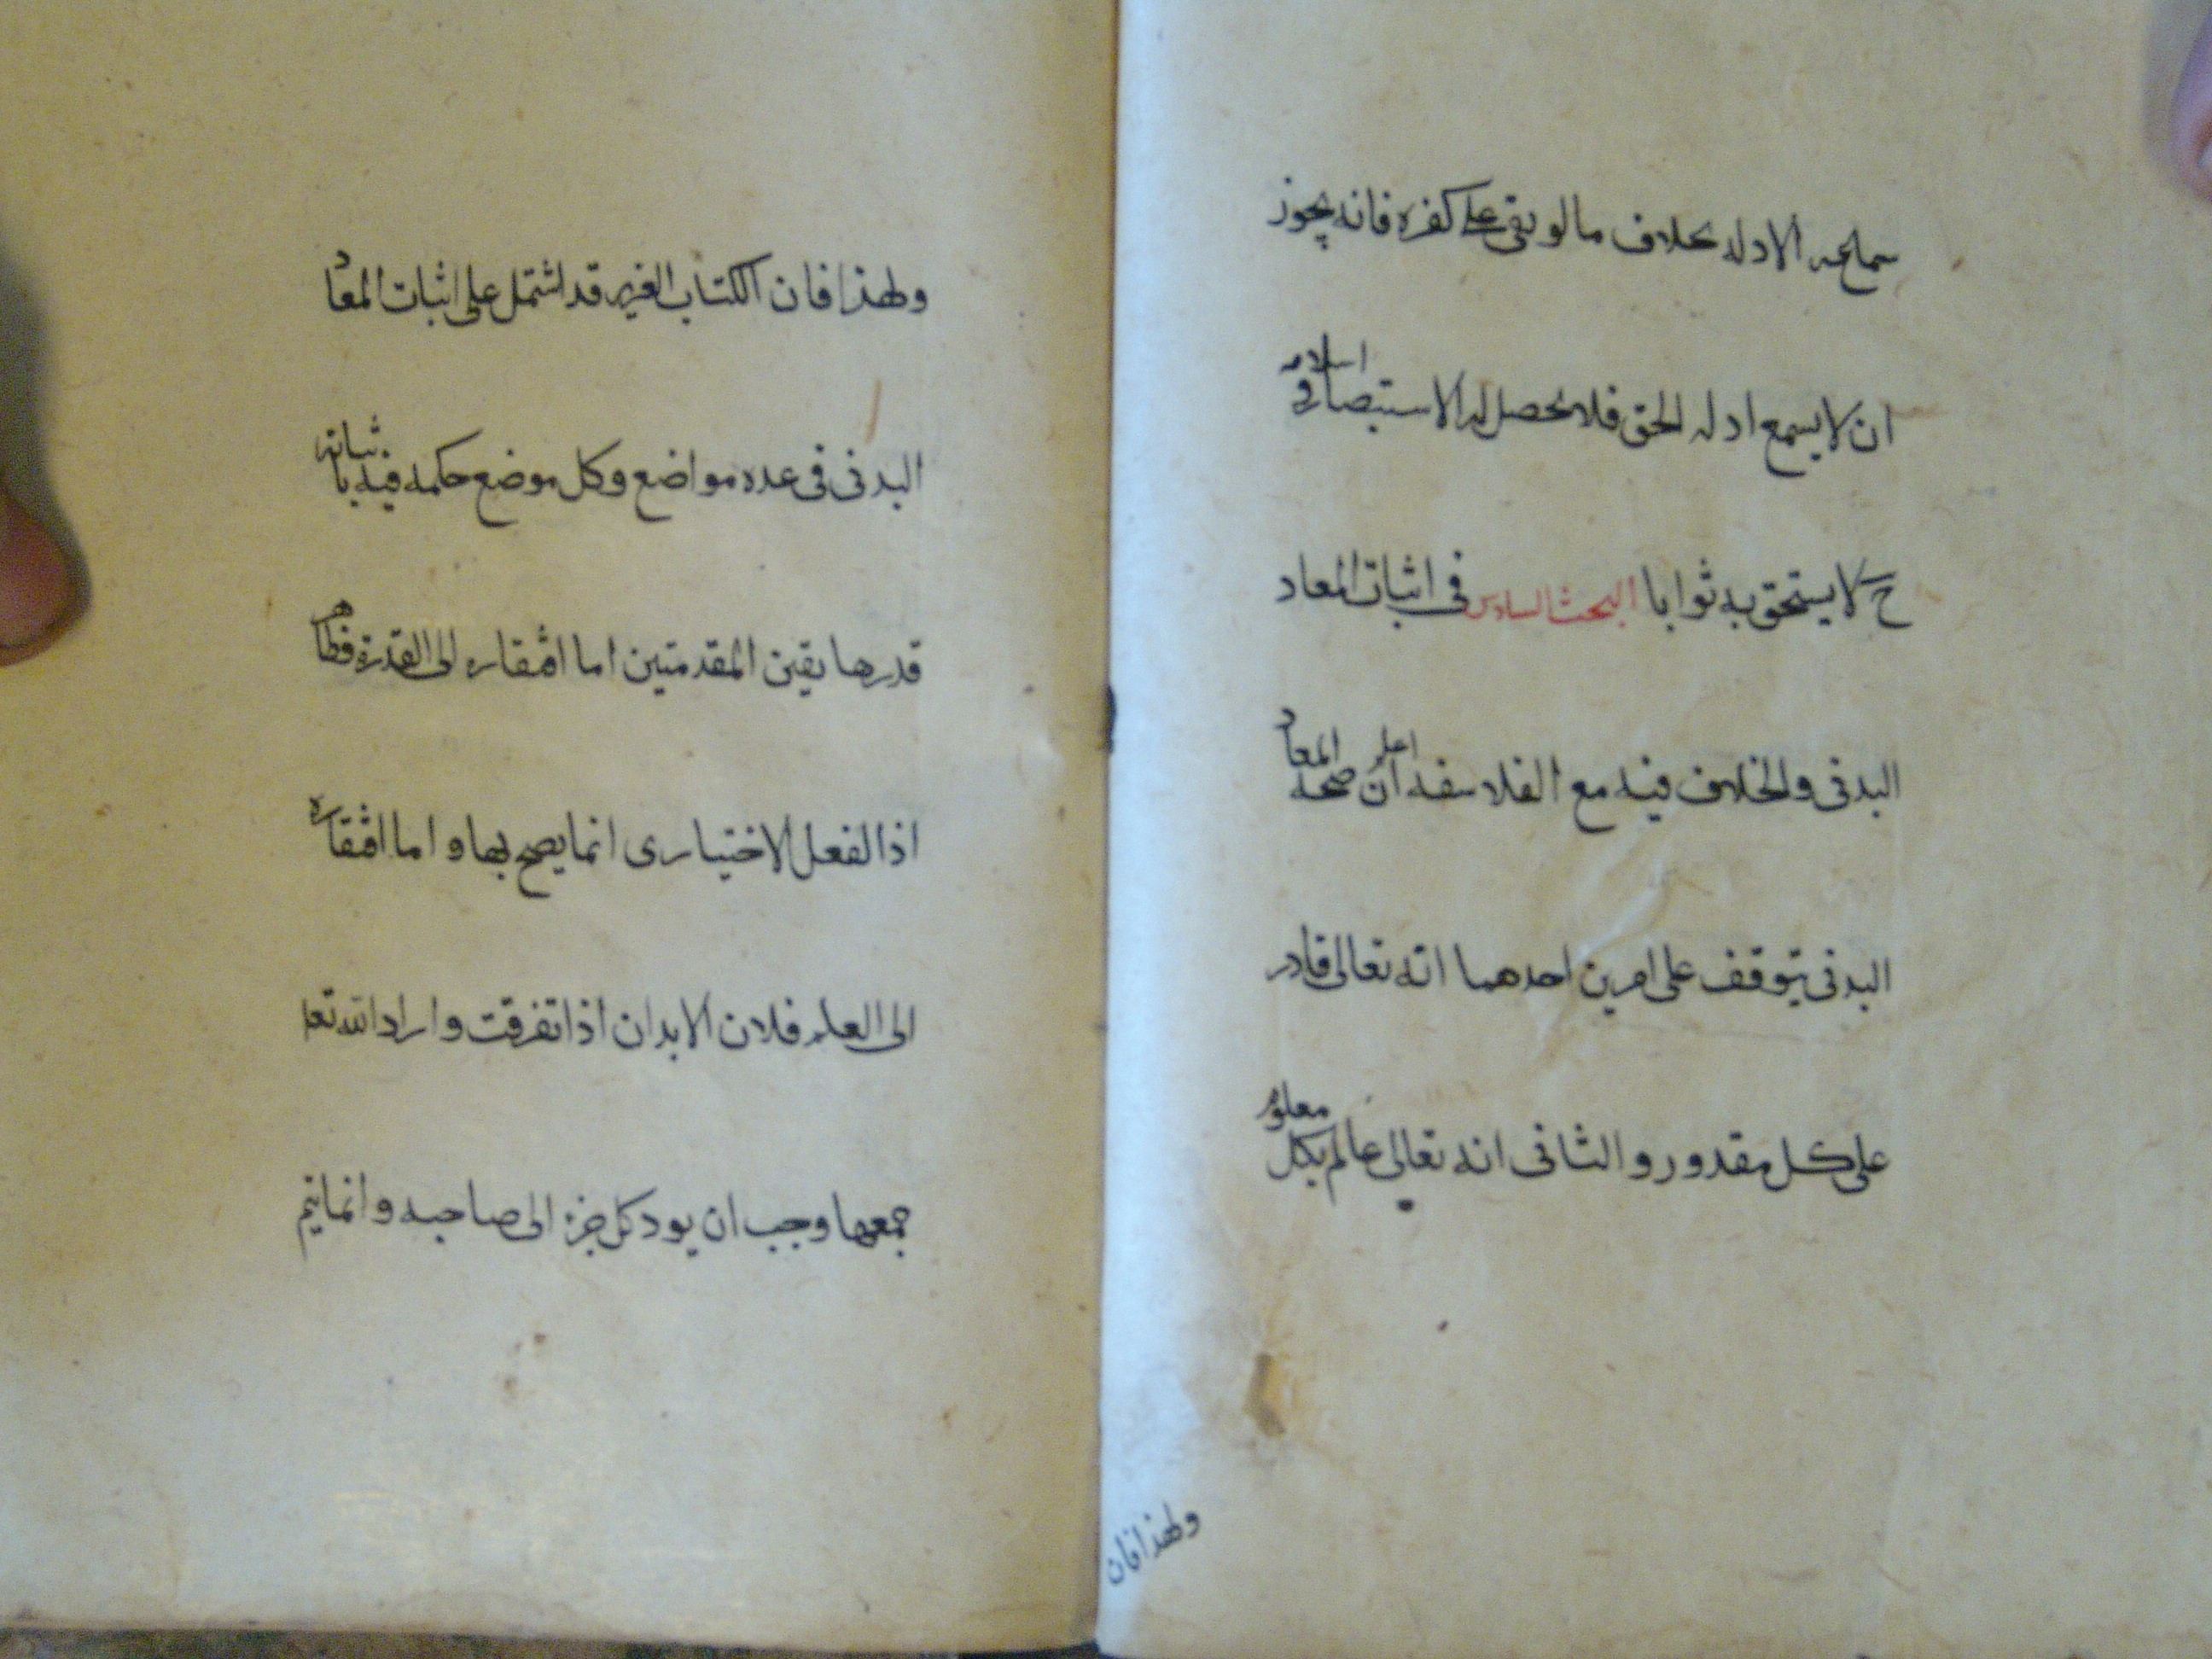 الادله بخلاف ما لو بقى على كفره فانه يجوز
ان لا يسمع ادله الحق فلا يحصل له الاستبصار و اسلامه
ح لا يستحق به ثوابا البحث السادس فى اثبات المعاد
البدنى والخلاف فيه مع الفلاسفه اعلم ان صحه المعاد
البدنى يتوقف على امرين احدهما انه تعالى قادر
على كل مقدور والثانى انه تعالى عالم بكل معلوم
ولهذا فان
ولهذا فان الكتاب العزيز قد اشتمل على اثبات المعاد
البدنى فى عده مواضع وكل موضع حكمه فيه باثباته
قدرها بقين المقدمتين اما افتقاره الى القدرة فظاهر
اذ الفعل الاختيارى انما يصح بها و اما افتقاره
الى العلم فلان الابدان اذا تفرقت و اراد الله تعا
جمعها وجب ان يود كل جزء الى صاحبه وانما يتم